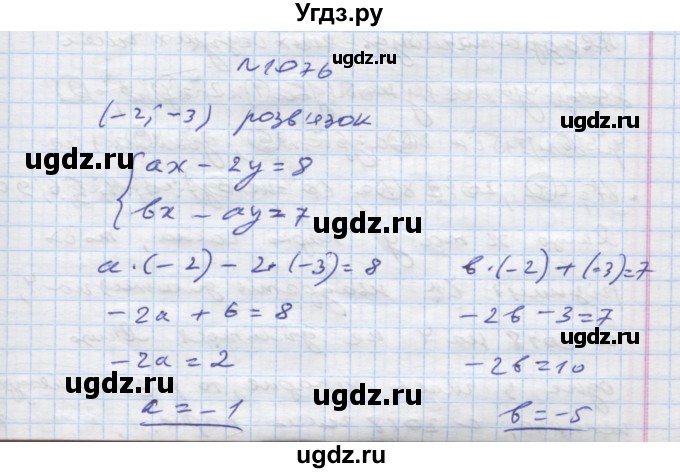 Угдз.ру
№1076
(-2; -3) розв'язок
ugdz.ru
{ax - 2y = 8
ugdz.ru
bx - ay = 7
ugdz.ru
a·(-2) - 2·(-3) = 8
b·(-2) + (-3) = 7
ugdz.ru
ugdz.ru
-2a + 6 = 8
-2b - 3 = 7
ugdz.ru
-2a = 2
-2b = 10
ugdz.ru
ugdz.ru
a = -1
b = -5
ugdz.ru